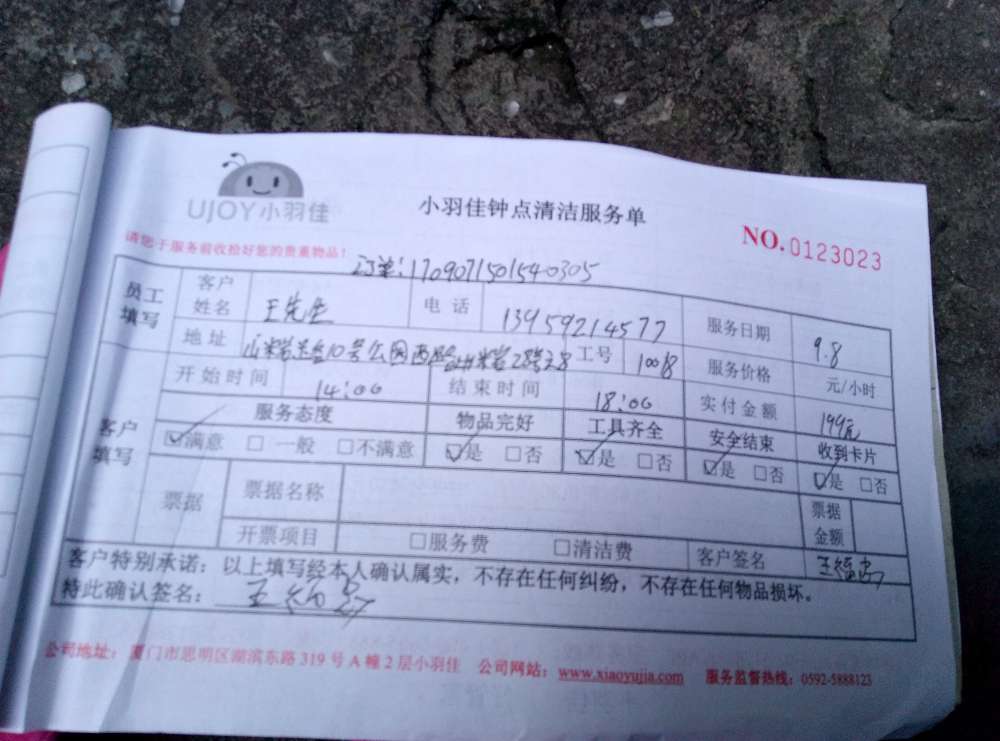 UJOY小羽佳
小羽佳钟点清洁服务单
NO.0123023
请您于服务前收拾好您的贵重物品!
订单:1709071501540305
员工填写 客户姓名 王先生 电话 13959214577 服务日期 9.8
地址 10号公园西路 28号 工号 10018 服务价格 元/小时
开始时间 14:00 结束时间 18:00 实付金额 199元
客户填写 服务态度 物品完好 工具齐全 安全结束 收到卡片
☑满意 □一般 □不满意 ☑是 □否 ☑是 □否 ☑是 □否 ☑是 □否
票据 票据名称 票据金额
开票项目 □服务费 □清洁费 客户签名 王
客户特别承诺:以上填写经本人确认属实,不存在任何纠纷,不存在任何物品损坏。
特此确认签名: 王
公司地址:厦门市思明区湖滨东路319号A幢2层小羽佳 公司网站:www.xiaoyujia.com 服务监督热线:0592-5888123